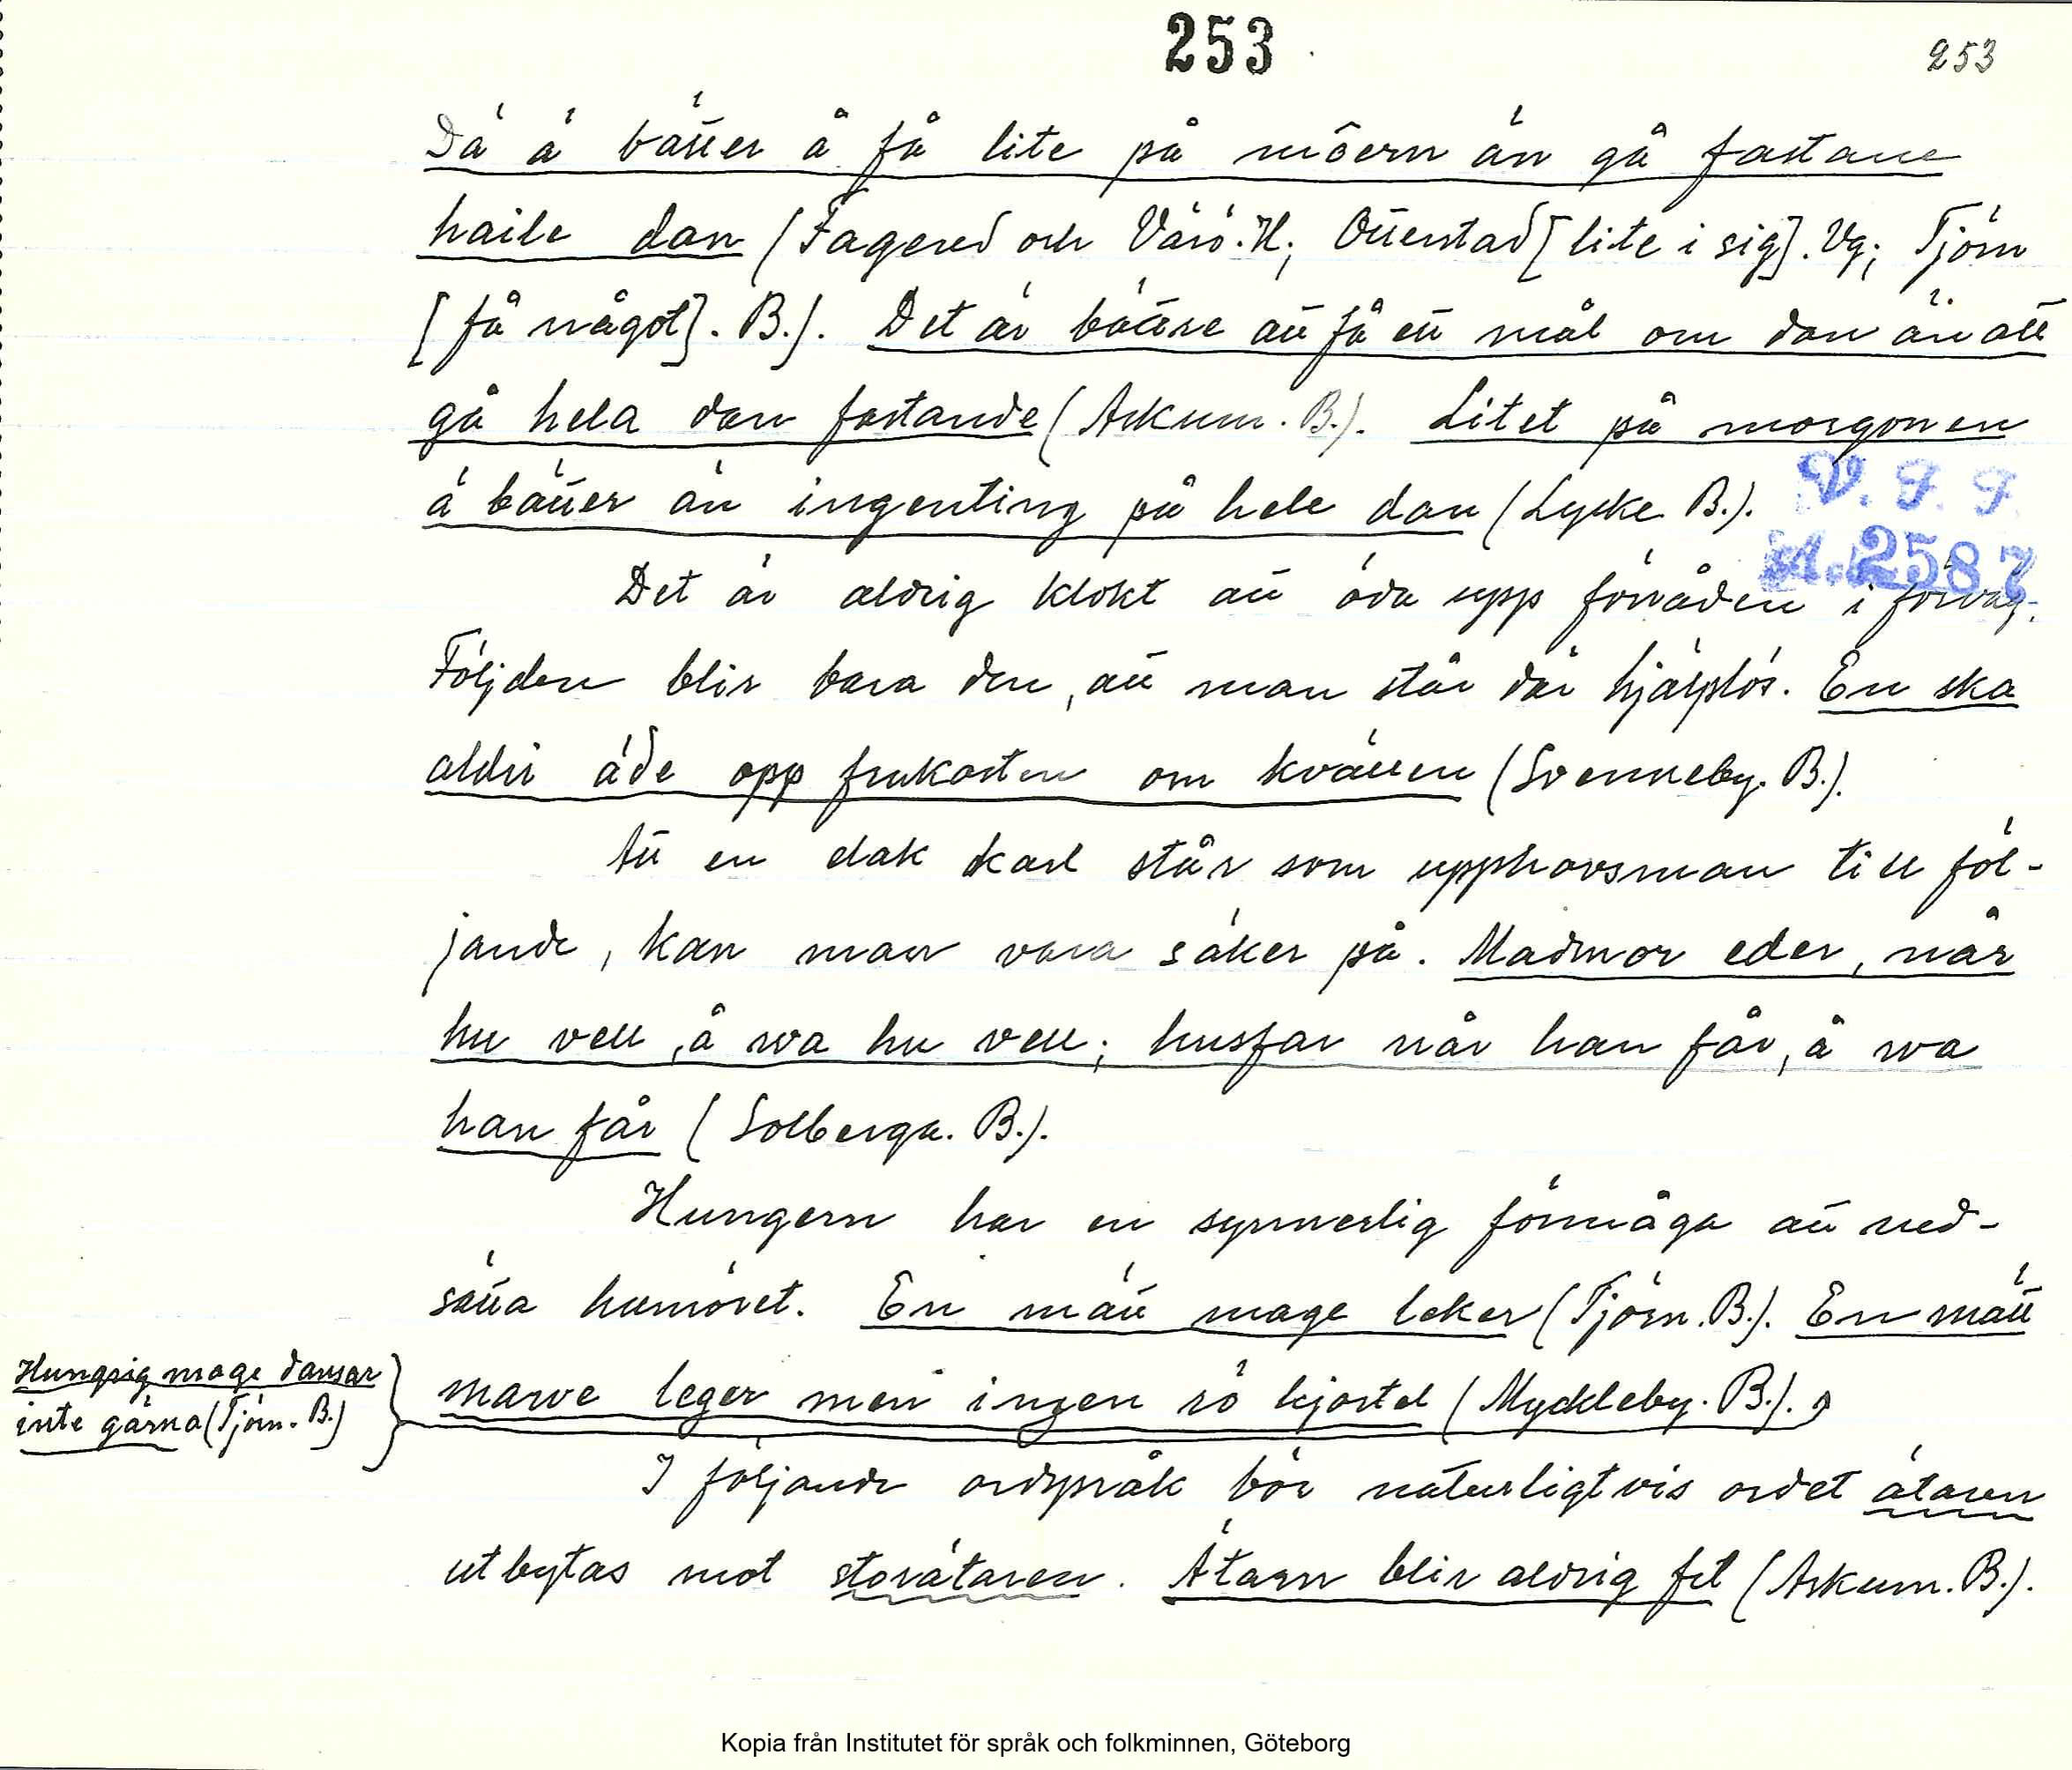 253
253
Dä ä bätter å få lite på môern än gå fastane
haile dan (Fagered och Värö. H; Otterstad [lite i sig]. Vg; Tjörn
[få något]. B.). Det är bättre att få ett mål om dan än att
gå hela dan fastande (Askum. B.). Litet på morgonen
ä bätter än ingenting på hele dan (Lycke B.).
V. F. F.
A. 2587
Det är aldrig klokt att öda upp förråden i förväg.
Följden blir bara den, att man står där hjälplös. En ska
aldri äde opp frukosten om kvällen (Svenneby. B.).
Att en elak karl står som upphovsman till föl-
jande, kan man vara säker på. Madmor eder, når
hu vell, å va hu vell; husfar når han får, å va
han får (Solberga. B.).
Hungern har en synnerlig förmåga att ned-
sätta humöret. En mätt mage leker (Tjörn. B.). En mätt
Hungrig mage dansar
inte gärna (Tjörn. B.)
mawe leger men ingen rö kjortel (Myckleby. B.).
I följande ordspråk bör naturligtvis ordet ätaren
utbytas mot storätaren. Ätarn blir aldrig fet (Askum. B.).
Kopia från Institutet för språk och folkminnen, Göteborg